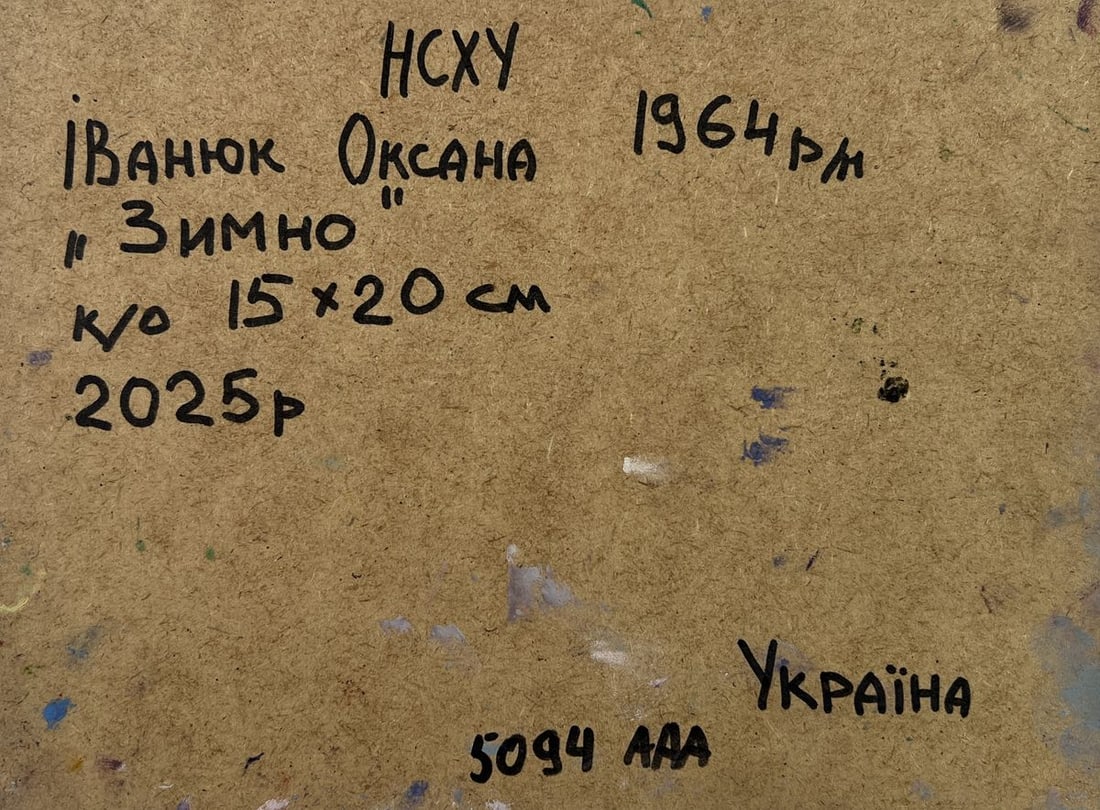 НСХУ
Іванюк Оксана 1964 р/н
„Зимно"
к/о 15×20 см
2025р
Україна
5094 ААА